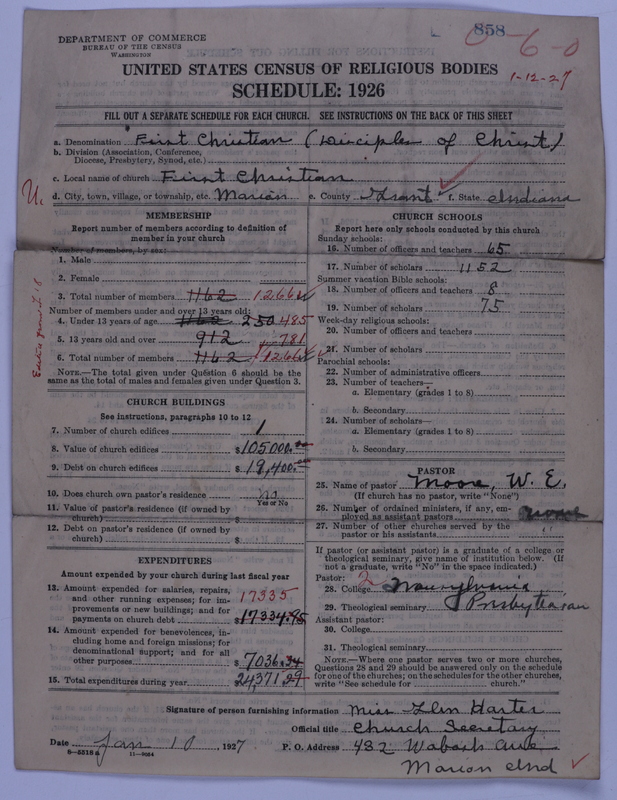 858
0-6-0
1-12-27
DEPARTMENT OF COMMERCE
BUREAU OF THE CENSUS
WASHINGTON
UNITED STATES CENSUS OF RELIGIOUS BODIES
SCHEDULE: 1926
FILL OUT A SEPARATE SCHEDULE FOR EACH CHURCH. SEE INSTRUCTIONS ON THE BACK OF THIS SHEET
a. Denomination First Christian (Disciples of Christ)
b. Division (Association, Conference, Diocese, Presbytery, Synod, etc.)
c. Local name of church First Christian
d. City, town, village, or township, etc. Marion e. County Grant f. State Indiana
MEMBERSHIP
Report number of members according to definition of
member in your church
Number of members, by sex:
1. Male
2. Female
3. Total number of members 1162 1266
Number of members under and over 13 years old:
4. Under 13 years of age 1162 250 485
5. 13 years old and over 912 781
6. Total number of members 1162 1266
NOTE.—The total given under Question 6 should be
same as the total of males and females given under Question 3.
CHURCH BUILDINGS
See instructions, paragraphs 10 to 12
7. Number of church edifices 1
8. Value of church edifices $105000.00
9. Debt on church edifices $19,400.00
10. Does church own pastor's residence No
Yes or No
11. Value of pastor's residence (if owned by
church) $
12. Debt on pastor's residence (if owned by
church) $
EXPENDITURES
Amount expended by your church during last fiscal year
13. Amount expended for salaries, repairs,
and other running expenses; for im-
provements or new buildings; and for
payments on church debt 17335 $17334.95
14. Amount expended for benevolences, in-
cluding home and foreign missions; for
denominational support; and for all
other purposes $7036.34
15. Total expenditures during year $24,371.29
CHURCH SCHOOLS
Report here only schools conducted by this church
Sunday schools:
16. Number of officers and teachers 65
17. Number of scholars 1152
Summer vacation Bible schools:
18. Number of officers and teachers 8
19. Number of scholars 75
Week-day religious schools:
20. Number of officers and teachers
21. Number of scholars
Parochial schools:
22. Number of administrative officers
23. Number of teachers—
a. Elementary (grades 1 to 8)
b. Secondary
24. Number of scholars—
a. Elementary (grades 1 to 8)
b. Secondary
PASTOR
25. Name of pastor Moore, W. E.
(If church has no pastor, write "None")
26. Number of ordained ministers, if any, em-
ployed as assistant pastors none
27. Number of other churches served by the
pastor or his assistants "
If pastor (or assistant pastor) is a graduate of a college or
theological seminary, give name of institution below. (If
not a graduate, write "No" in the space indicated.)
Pastor: 2
28. College
29. Theological seminary Presbyterian
Assistant pastor:
30. College
31. Theological seminary
NOTE.—Where one pastor serves two or more churches,
Questions 28 and 29 should be answered only on the schedule
for one of the churches; on the schedules for the other churches,
write "See schedule for church."
Signature of person furnishing information Miss Harter
Official title Church Secretary
Date Jan 10, 1927 P. O. Address 432 Wabash Ave
8—5516 a 11—9034
Marion Ind